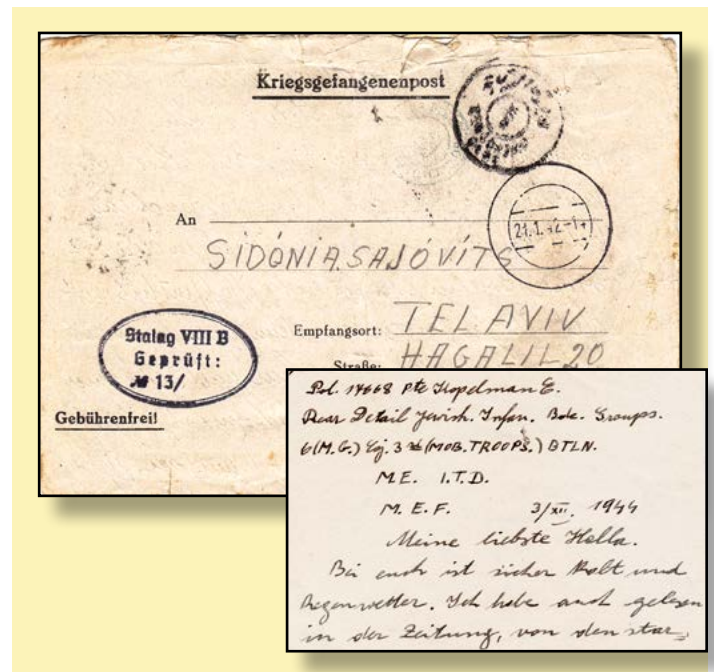 Kriegsgefangenenpost
21.1.42-14
An
SIDÓNIA.SAJÓVÍTS
Empfangsort: TEL AVIV
Straße: HAGALIL 20
Stalag VIII B
Geprüft:
№ 13/
Gebührenfrei!
Pal. 14668 Pte Kopelman E.
Rear Detail Jewish. Infan. Bde. Groups.
6(M.G.) Coy. 3 (MOB.TROOPS.) BTLN.
M.E. I.T.D.
M.E.F. 3/XII. 1944
Meine liebste Hella.
Bei euch ist sicher Kalt und
Regenwetter. Ich habe auch gelesen
in der Zeitung, von den star=